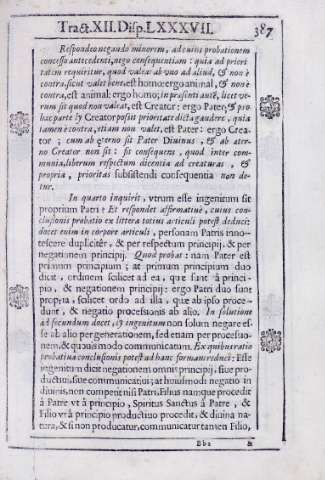 Tract. XII. Disp. LXXXVII. 387
Respondeo negando minorem, ad cuius probationem
concesso antecedenti, nego consequentiam: quia ad priori
tatem requiritur, quod valeat ab vno ad aliud, & non è
contra, sicut valet bene, est homo: ergo animal, & non è
contra, est animal: ergo homo; in præsenti autẽ, licet ve-
rum sit quod non valeat, est Creator: ergo Pater, & pro
hac parte ly Creator possit prioritate dicta gaudere, quia
tamen è contra, etiam non valet, est Pater: ergo Crea-
tor; cum ab æterno sit Pater Diuinus, & ab æter-
no Creator non sit: fit consequens, quod inter com-
munia, liberum respectum dicentia ad creaturas, &
propria, prioritas subsistendi consequentia non de-
tur.
In quarto inquirit, vtrum esse ingenitum sit
proprium Patri? Et respondet affirmatiuè, cuius con-
clusionis probatio ex littera totius articuli potest deduci:
docet enim in corpore articuli, personam Patris inno-
tescere dupliciter, & per respectum principij, & per
negationem principij. Quod probat: nam Pater est
primum principium; at primum principium duo
dicit, ordinem scilicet ad ea, quæ sunt à princi-
pio, & negationem principij: ergo Patri duo sunt
propria, scilicet ordo ad illa, quæ ab ipso proce-
dunt, & negatio processionis ab alio. In solutione
ad secundum docet, ly ingenitum non solum negare es-
se ab alio per generationem, sed etiam per processio-
nem, & quouis modo communicatum. Ex quibus ratio
probatiua conclusionis potest ad hanc formam reduci: Esse
ingenitum dicit negationem omnis principij, siue pro-
ductiui, siue communicatiui; at huiusmodi negatio in
diuinis, non competit nisi Patri, Filius namque procedit
à Patre vt à principio, Spiritus Sanctus à Patre, &
Filio vt à principio productiuo procedit, & diuina na-
tura, & si non producatur, communicatur tamen Filio,
Bbb 2 &